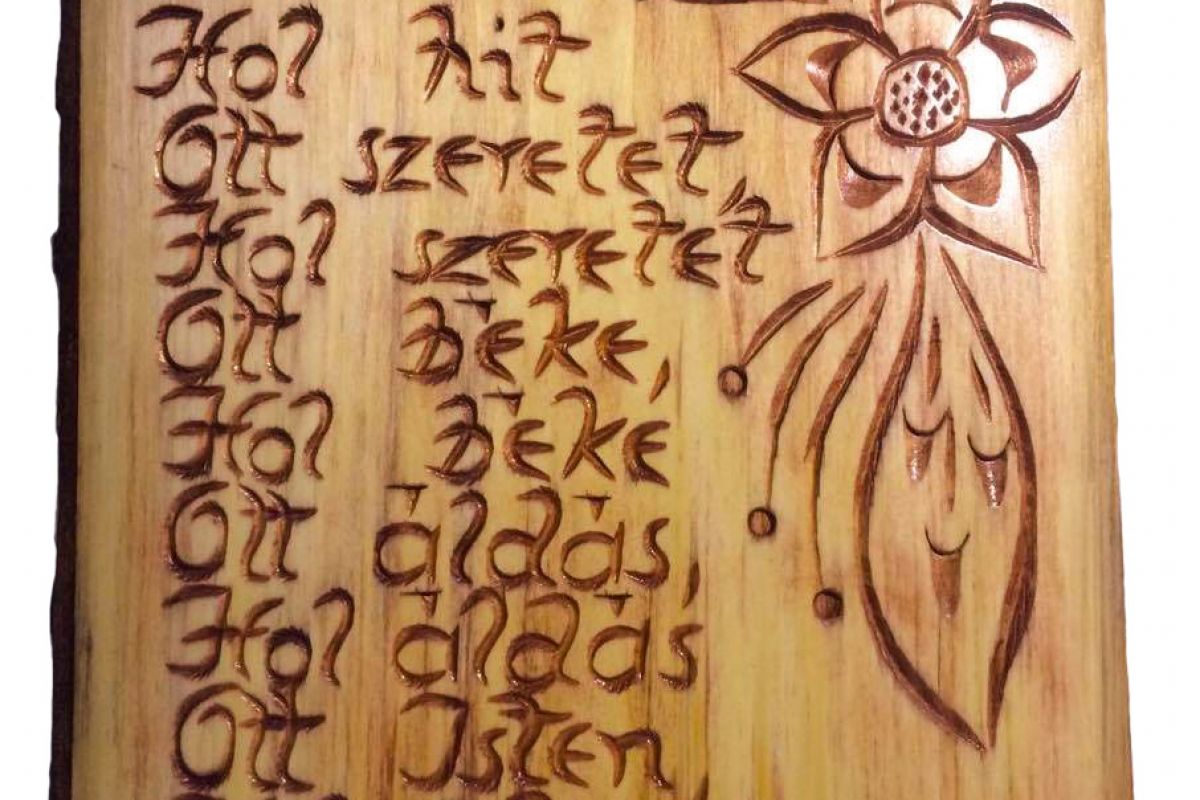 Hol hit
Ott szeretet,
Hol szeretet
Ott Béke,
Hol Béke
Ott áldás,
Hol áldás
Ott Isten,